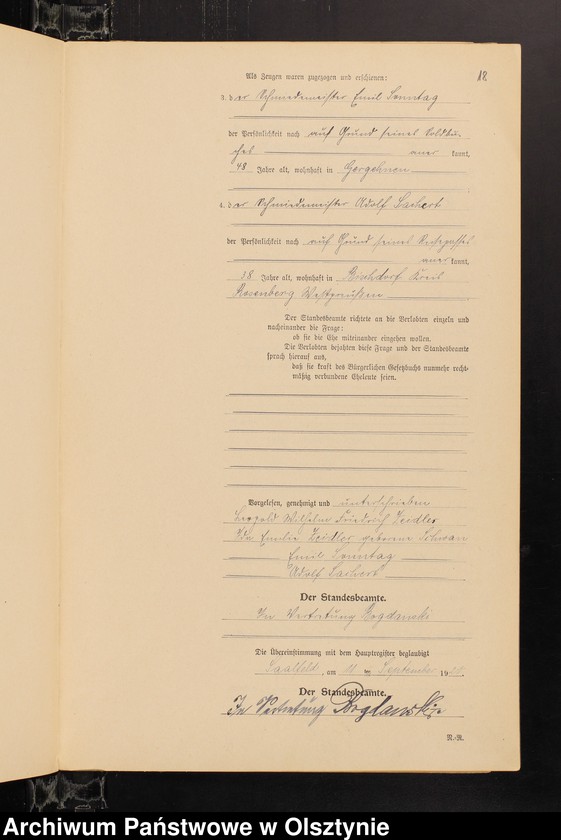 12
Als Zeugen waren zugezogen und erschienen:
3. der Schmiedemeister Emil Sonntag
der Persönlichkeit nach auf Grund seines Soldbu-
ches anerkannt,
48 Jahre alt, wohnhaft in Gergehnen
4. der Schmiedemeister Adolf Lachert
der Persönlichkeit nach auf Grund seines Reisepasses
anerkannt,
38 Jahre alt, wohnhaft in Bischdorf Kreis
Rosenberg Westpreußen
Der Standesbeamte richtete an die Verlobten einzeln und
nacheinander die Frage:
ob sie die Ehe miteinander eingehen wollen.
Die Verlobten bejahten diese Frage und der Standesbeamte
sprach hierauf aus,
daß sie kraft des Bürgerlichen Gesetzbuchs nunmehr recht-
mäßig verbundene Eheleute seien.
Vorgelesen, genehmigt und unterschrieben
Leopold Wilhelm Friedrich Zeidler
Ida Emilie Zeidler geborene Schwarz
Emil Sonntag
Adolf Lachert
Der Standesbeamte.
In Vertretung Bogdanski
Die Übereinstimmung mit dem Hauptregister beglaubigt
Saalfeld, am September 19
Der Standesbeamte.
In Vertretung Bogdanski
N.-R.
Archiwum Państwowe w Olsztynie